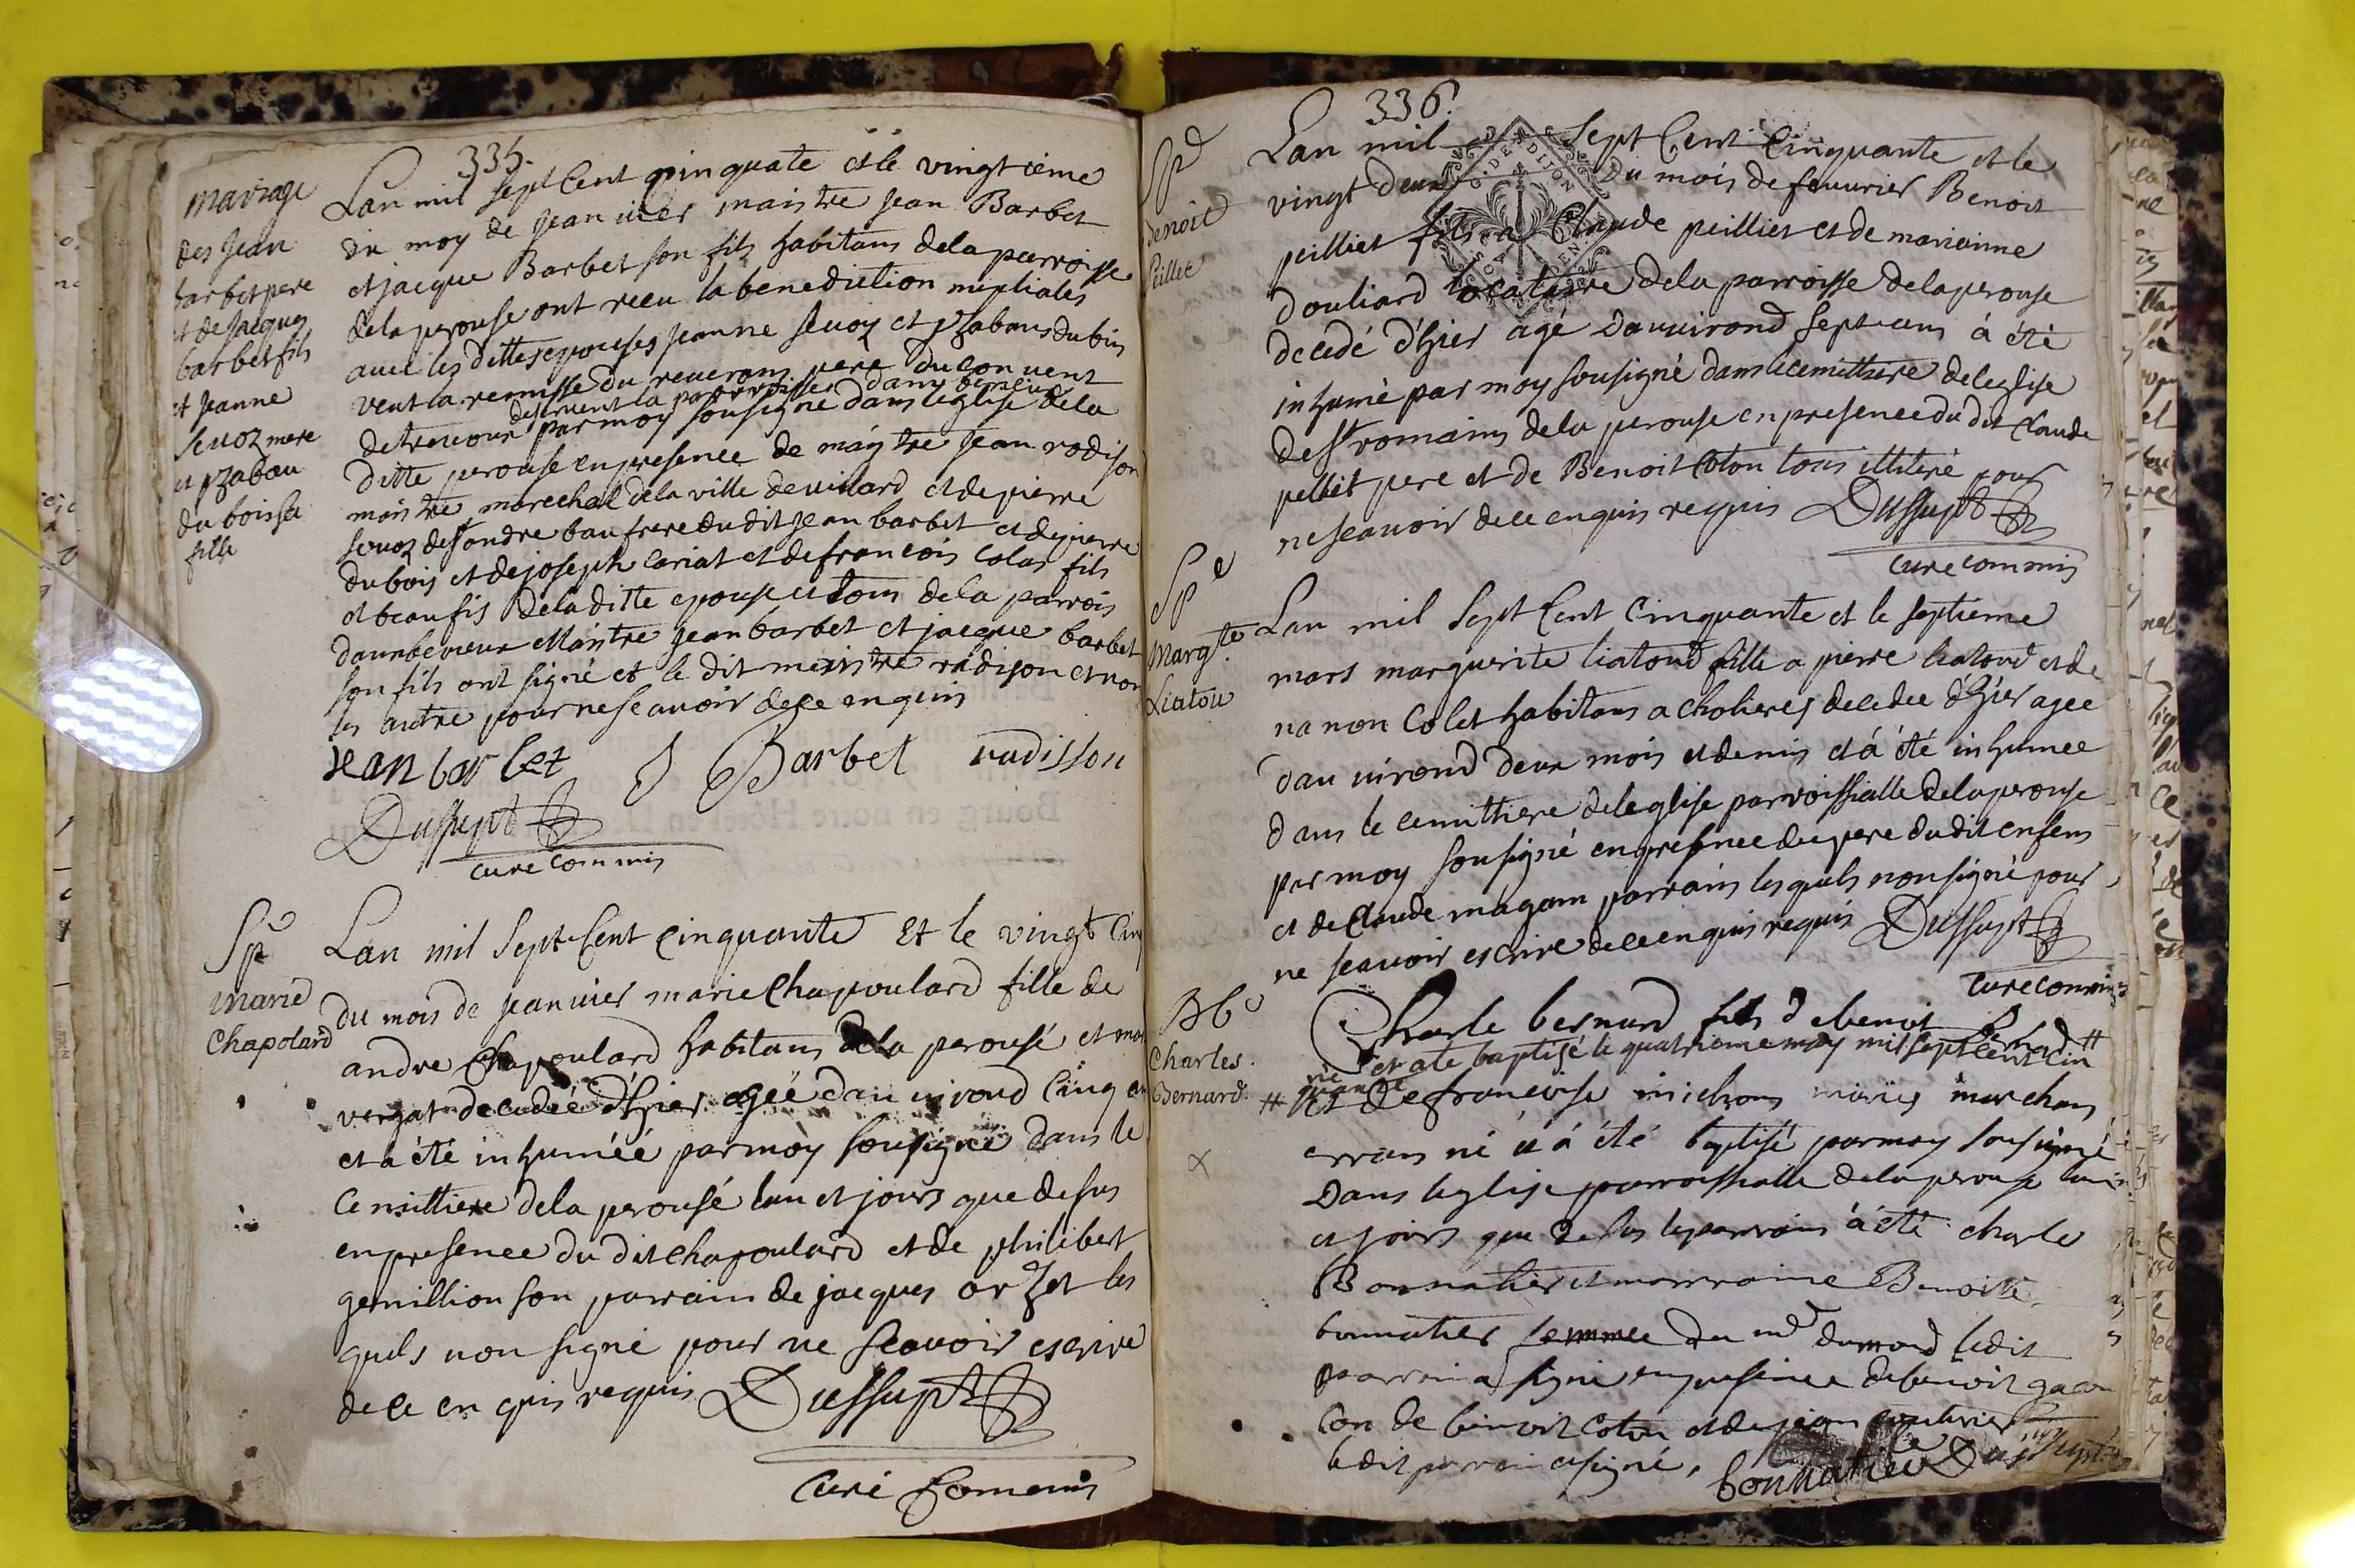 335.
mariage
des jean
barbet pere
et de jacques
barbet fils
et jeanne
sevoz mere
et yzabau
du bois sa
fille
Lan mil sept cent cinquate et le vingtieme
du moy de jeanvier maistre jean Barbet
et jacque Barbet son fils habitans dela parroisse
dela perouse ont receu la benediction nuptiales
avec les dittes epouses jeanne sevoz et yzabaus dubois
veut la remisse du reverans pere du convent
deservent la parroisse
par moy sousigné dans leglise dela
ditte perouse en presence de maytre jean radison
maistre marechal dela ville de vilard et de pierre
sevoz de st andre bau frere du dit jean barbet et de pierre
dubois et de joseph cariat et de francois colas fils
et beau fis dela ditte epouse et tous dela parrois
maistre jean barbet et jacque barbet
son fils ont signé et le dit maistre radison et non
les autre pour ne seavoir de ce enquis
jean barbet J Barbet radisson
Dussupt
cure commis
Sp
marie
Chapolard
Lan mil sept cent cinquante Et le vingt cinq
du mois de jeanvier marie Chapoulard fille de
andre Chapoulard habitans dela perousé et
vergat decedeé d'hier ageé dau virond cinq
et a été inhumeé par moy sousigné dans le
cemittiere dela perousé lan et jours que desus
en presence du dit Chapoulard et de philibert
gemillion son parrain de jacques les
quels non signé pour ne seavoir escrire
de ce en quis requis Dussupt
Curé Commis
336.
Sp
Benoit
Peillet
Lan mil sept Cent Cinquante et le
vingt deux du mois de fevvrier Benoit
peilliet fils a Claude peilliet et de marianne
douliard locataire dela parroisse dela perouse
decedé d'hier agé dauvirond sept ans á été
inhumé par moy sousigné dans le cemittiere deleglise
de st romains dela perouse en presence du dit Claude
pelliet pere et de Benoit Coton tous illiteré pour
ne seavoir de ce enquis requis Dussupt
cure commis
Sp
Margte
Liatou
Lan mil sept Cent cinquante et le septieme
mars marguerite liatoud fille a pierre liatoud et de
nanon Colet habitans a cholieres decedee d'hier agee
dau virond deux mois et demis et á été inhumee
dans le cemittiere deleglise parroissialle dela perouse
par moy sousigné en presence du pere dudit enfens
et de Claude magam parrains les quels non signé pour
ne seavoir escrire de ce enquis requis Dussupt
Cure commis
Charles
Bernard.
Charle bernard fils d ebenoit Bernad #
né et a ete baptisé le quatrieme may mil sept cent cin
quante
# et de francoise michons mariés marchans
errans né et á été baptisé par moy sousigné
Dans leglise parroissialle dela perouse lan
et jours que desus le parrain á été charle
Bonnatier et marraine Benoitte
bonnatier femmee du md dumond ledit
parrain a signé en presence de benoit
de benoit coton et de jean
ledit parrain a signé.
bonnatier Dussupt